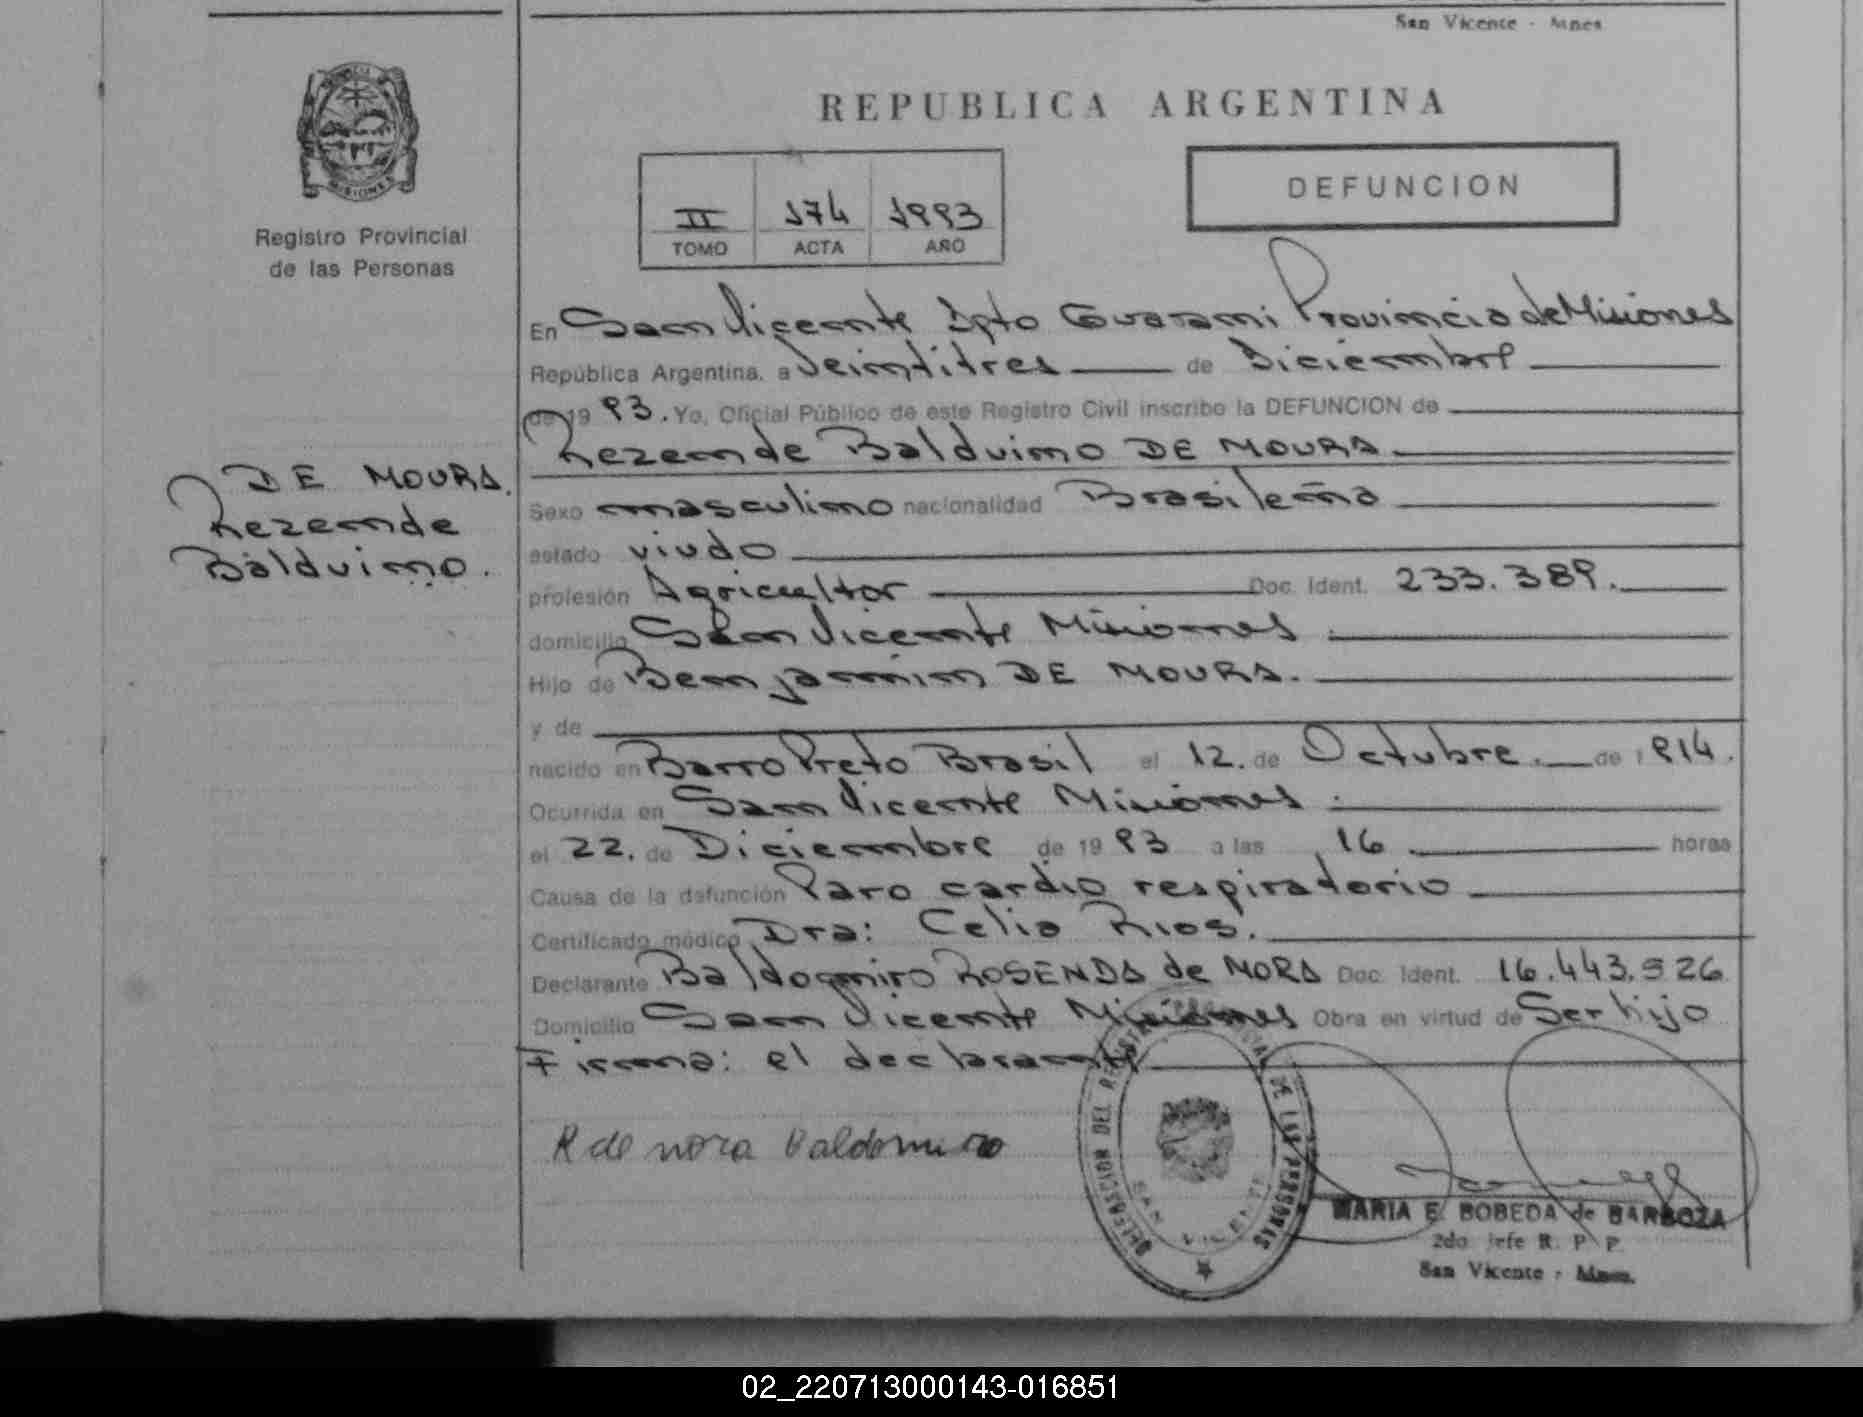 San Vicente - Mnes.
PROVINCIA
MISIONES
Registro Provincial
de las Personas
REPUBLICA ARGENTINA
II 174 1993
TOMO ACTA AÑO
DEFUNCION
En San Vicente Dpto Guarani Provincia de Misiones
República Argentina, a Veintitres de Diciembre
de 1993. Yo, Oficial Público de este Registro Civil inscribo la DEFUNCION de
Rezende Balduino DE MOURA
DE MOURA.
Rezende
Balduino.
Sexo masculino nacionalidad Brasileña
estado viudo
profesión Agricultor Doc. Ident. 233.389.
domicilio San Vicente Misiones
Hijo de Benjamin DE MOURA.
y de
nacido en Barro Preto Brasil el 12. de Octubre. de 1914.
Ocurrida en San Vicente Misiones
el 22. de Diciembre de 1993 a las 16 horas
Causa de la defunción Paro cardio respiratorio
Certificado médico Dra: Celia Rios.
Declarante Baldomiro ROSENDA de MORA Doc. Ident. 16.443.526
Domicilio San Vicente Misiones Obra en virtud de Ser hijo
Firma: el declarante
R de mora Baldomiro
DELEGACION DEL REGISTRO PROVINCIAL DE LAS PERSONAS
SAN VICENTE
MARIA E. BOBEDA de BARBOZA
2do Jefe R. P. P.
San Vicente - Mnes.
02_220713000143-016851